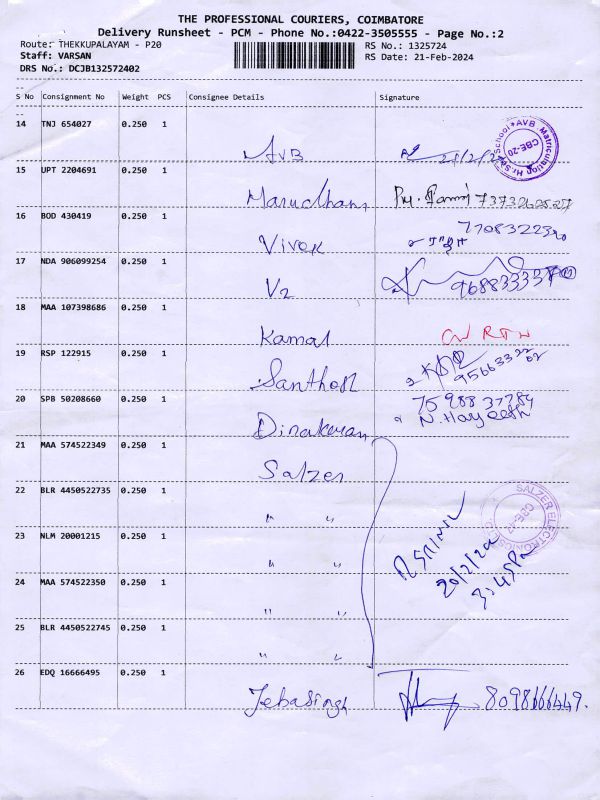 THE PROFESSIONAL COURIERS, COIMBATORE
Delivery Runsheet - PCM - Phone No.:0422-3505555 - Page No.:2
Route: THEKKUPALAYAM - P20 RS No.: 1325724
Staff: VARSAN RS Date: 21-Feb-2024
DRS No.: DCJB132572402
S No Consignment No Weight PCS Consignee Details Signature
14 TNJ 654027 0.250 1 AVB
AVB Matriculation Hr.Sec School CBE-20
15 UPT 2204691 0.250 1 Marudham
16 BOD 430419 0.250 1 Vivek 7708322320
17 NDA 906099254 0.250 1 V2
18 MAA 107398686 0.250 1 Kamal RTN
19 RSP 122915 0.250 1 Santhosh
20 SPB 50208660 0.250 1 Dinakaran 7598837784
N. Hayeeth
21 MAA 574522349 0.250 1 Salzer
22 BLR 4450522735 0.250 1 " "
SALZER ELECTRONICS
23 NLM 20001215 0.250 1 " "
24 MAA 574522350 0.250 1 " "
3:45PM
25 BLR 4450522745 0.250 1 " "
26 EDQ 16666495 0.250 1 Jebasingh 8098166449.